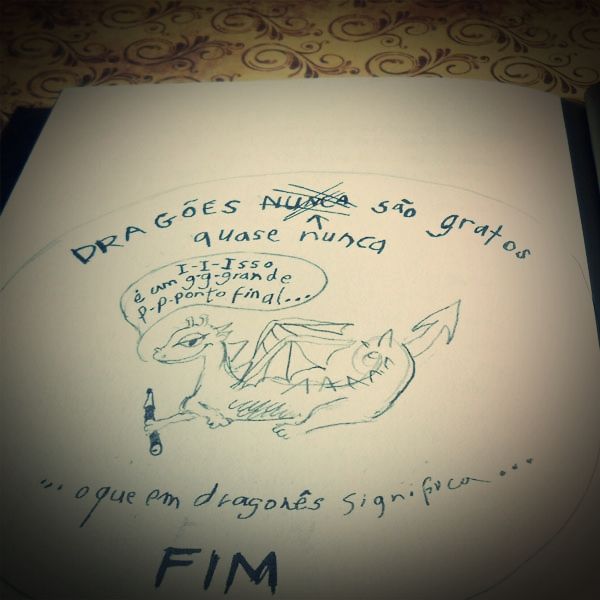 DRAGÕES NUNCA são gratos
quase nunca
I-I-Isso
é um g-g-grande
p-p-ponto final...
...o que em dragonês significa...
FIM